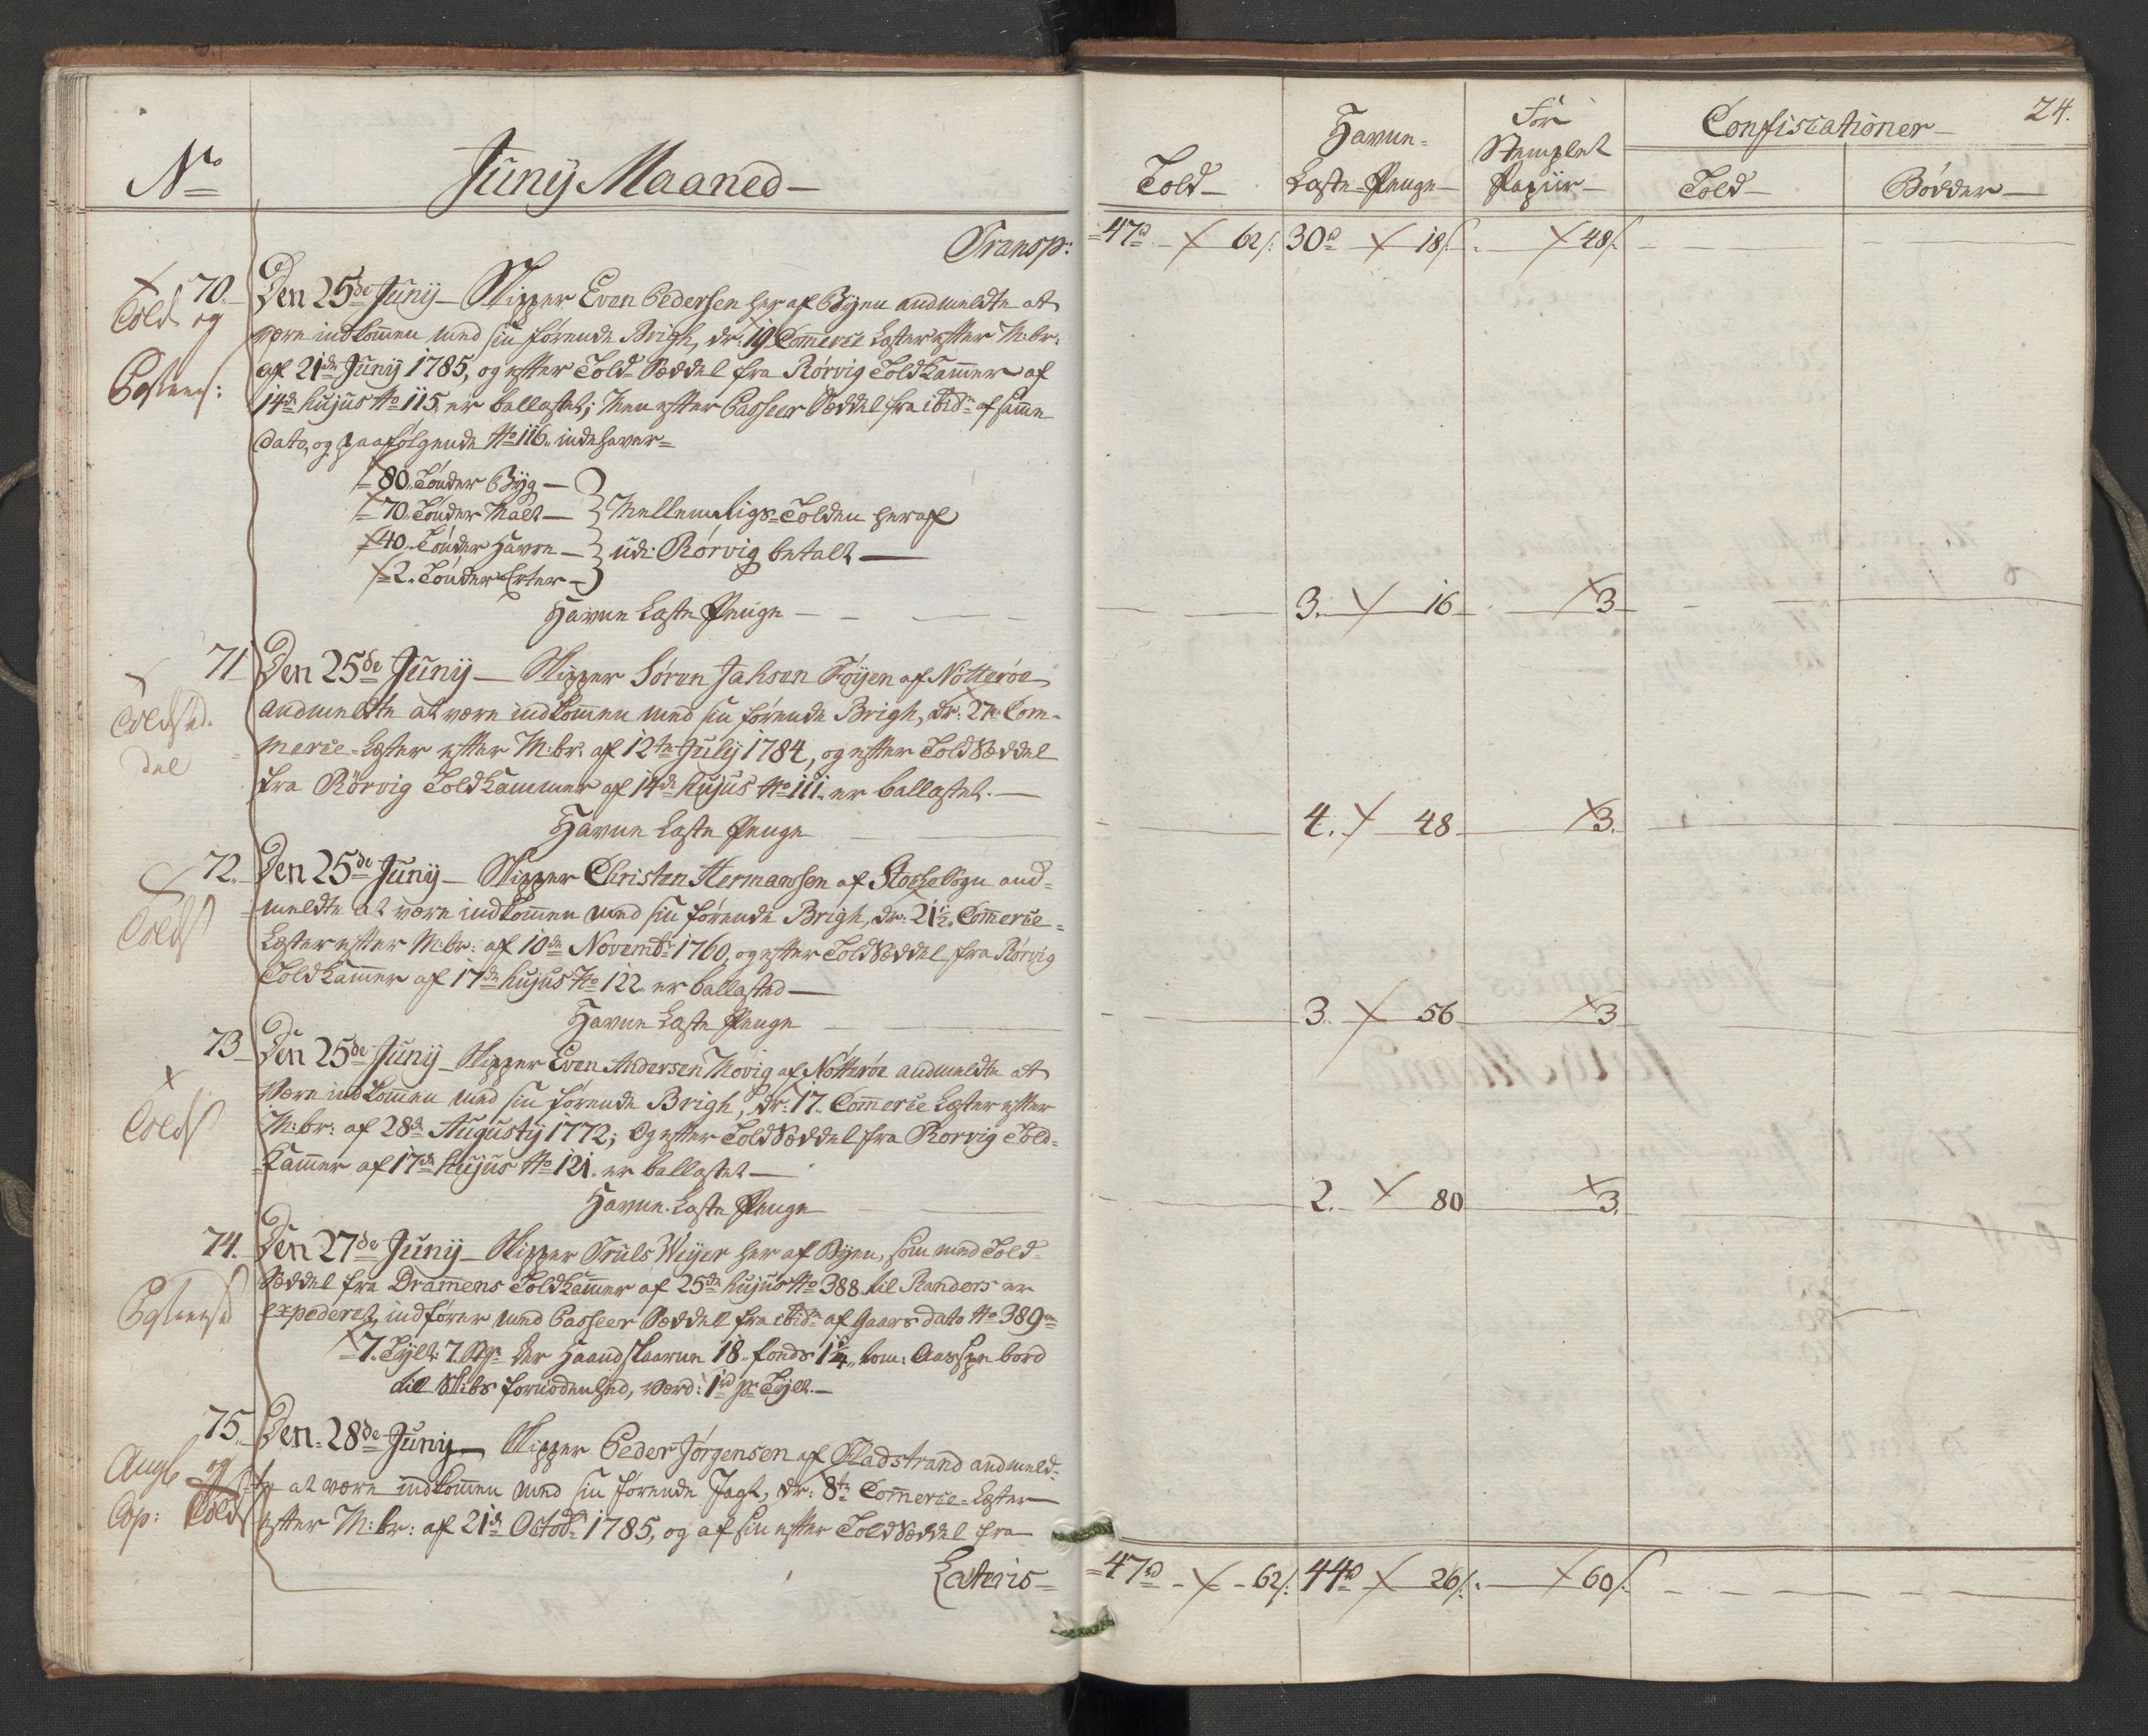 No
Juny Maaned
Transp:
70. Den 25de Juny Skipper Even Pedersen her af Byen andmeldte at
Told og
være indkommen med sin førende Brigh, dr: 19 Commerce Læster efter M:br:
af 21de Juny 1785, og efter Told Sæddel fra Rørvig Toldkammer af
14de hujus No 115 er ballastet; Men efter Passeer Sæddel fra ibid. af samme
dato, og paafølgende No 116. indehaver
80. Tønder Byg
70. Tønder Malt
40. Tønder Havre
2. Tønder Erter
Mellemrigs-Tolden heraf
udi Rørvig betalt
Havne Laste Penge
71 Den 25de Juny Skipper Søren Jahsen Føyen af Nötterøe
Toldsed-
del
andmeldte at være indkommen med sin førende Brigh, dr: 27 Com-
merce-Læster efter M:br: af 12te July 1784, og efter Told Sæddel
fra Rörvig Toldkammer af 14de hujus No 111. er ballastet.
Havne Laste Penge
72. Den 25de Juny Skipper Christen Hermansen af Stochesogn and-
meldte at være indkommen med sin førende Brigh, dr: 21½. Commerce-
Told
Læster efter M:br: af 10de Novembr 1760, og efter Told Sæddel fra Rörvig
Toldkammer af 17de hujus No 122. er ballasted
Havne Laste Penge
73 Den 25de Juny Skipper Even Andersen Møvig af Nötterøe andmeldte at
Være indkommen med sin førende Brigh, dr: 17. Commerce Læster efter
Told
M:br: af 28de Augusty 1772; Og efter Told Sæddel fra Rorvig Told-
kammer af 17de hujus No 121. er ballastet
Havne Laste Penge
74. Den 27de Juny Skipper Truls Weyer her af Byen, som med Told-
Sæddel fra Drammens Toldkammer af 25de hujus No 388. til Randers er
expederet, indfører med Passeer Sæddel fra ibid. af Gaars dato No 389
7. Tylt 7. Haandskaarne 18. fonds 1¼ tom: bord
til Skibs fornødenhed, værd: 1rd pr Tylt.
75. Den 28de Juny Skipper Peder Jörgensen af Fladstrand andmeld-
Angl og
te at være indkommen med sin førende Jagt, dr: 8te Commerce-Læster
Cop: Told
efter M:br: af 21de Octobr 1785, og af sin efter Told Sæddel fra
Lateris
24.
Told
Havne-
Laste-Penge
For
Stemplet
Papiir
Confiscationer
Told
Bödder
47rd 62s. 30rd 18s. 48s.
3. 16 3
4. 48 3.
3. 56 3
2. 80 3.
47rd 62s. 44rd 26s. 60s.